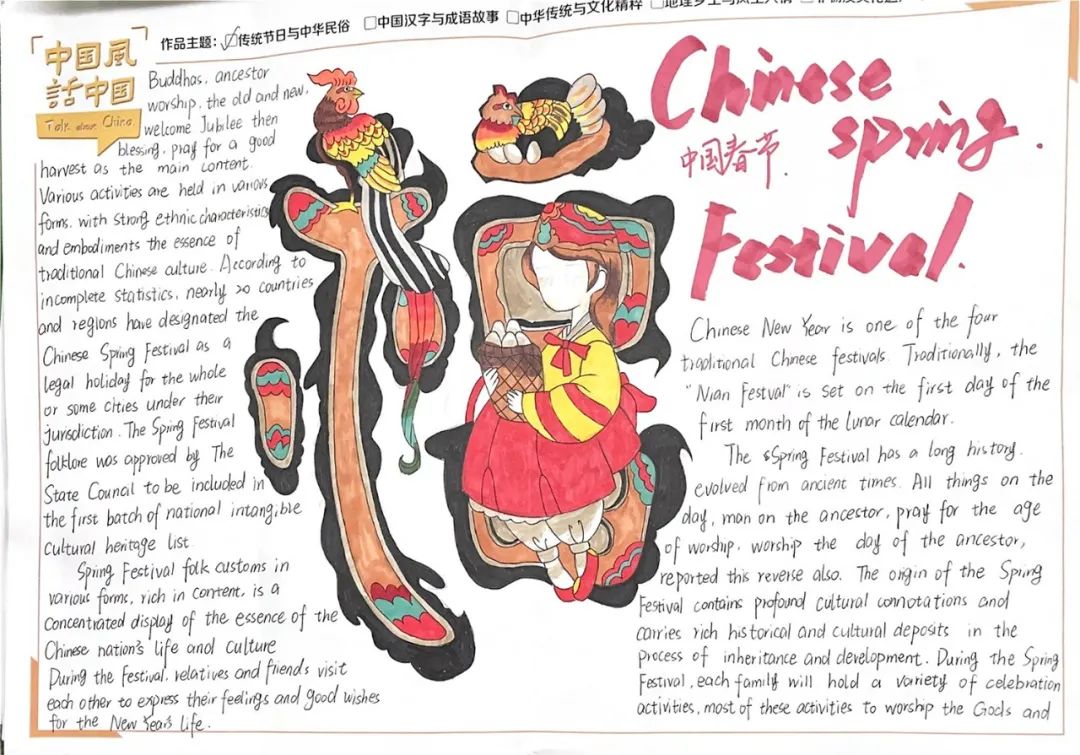 作品主题：☑传统节日与中华民俗 □中国汉字与成语故事 □中华传统与文化精粹
中国風
話中国
Talk about China
Chinese
spring
中国春节.
Festival.
Chinese New Year is one of the four
traditional Chinese festivals. Traditionally, the
"Nian Festval" is set on the first day of the
first month of the lunar calendar.
The sSpring Festival has a long history.
evolved from ancient times. All things on the
day, man on the ancestor, pray for the age
of worship, worship the day of the ancestor,
reported this reverse also. The origin of the Spring
Festival contains profound cultural connotations and
carries rich historical and cultural deposits in the
process of inheritance and development. During the Spring
Festival, each family will hold a variety of celebration
activities, most of these activities to worship the Gods and
Buddhas, ancestor
worship, the old and new,
welcome Jubilee then
blessing, pray for a good
harvest as the main content.
Various activities are held in various
forms, with strong ethnic characteristics
and embodiments the essence of
traditional Chinese culture. According to
incomplete statistics, nearly 20 countries
and regions have designated the
Chinese Spring Festival as a
legal holiday for the whole
or some cities under their
jurisdiction. The Spring Festival
folklore was approved by The
State Council to be included in
the first batch of national intangible
cultural heritage list
Spring Festival folk customs in
various forms, rich in content, is a
concentrated display of the essence of the
Chinese nation's life and culture
During the Festival, relatives and friends visit
each other to express their feelings and good wishes
for the New Year's life.